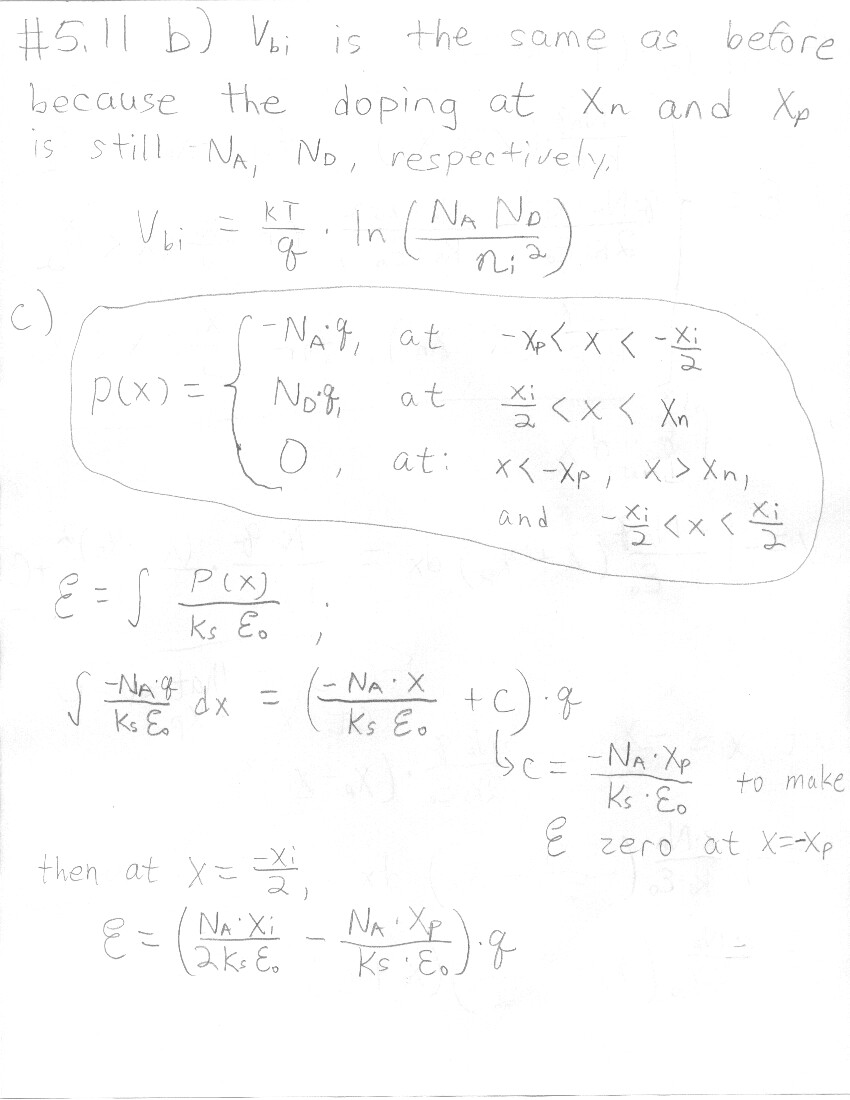 #5.11 b) Vbi is the same as before
because the doping at Xn and Xp
is still -NA, ND, respectively.
Vbi = kT/q · ln (NA ND / ni²)
c)
ρ(x) = { -NA·q, at -xp < x < -xi/2
ND·q, at xi/2 < x < xn
0, at: x < -xp, x > xn,
and -xi/2 < x < xi/2
ℰ = ∫ ρ(x) / (Ks ℰ₀) ;
∫ -NA·q / (Ks ℰ₀) dx = ( -NA·x / (Ks ℰ₀) + C ) · q
↳ C = -NA·Xp / (Ks·ℰ₀) to make
ℰ zero at x=-xp
then at x = -xi/2,
ℰ = ( NA·Xi / (2Ks ℰ₀) - NA·Xp / (Ks·ℰ₀) ) · q